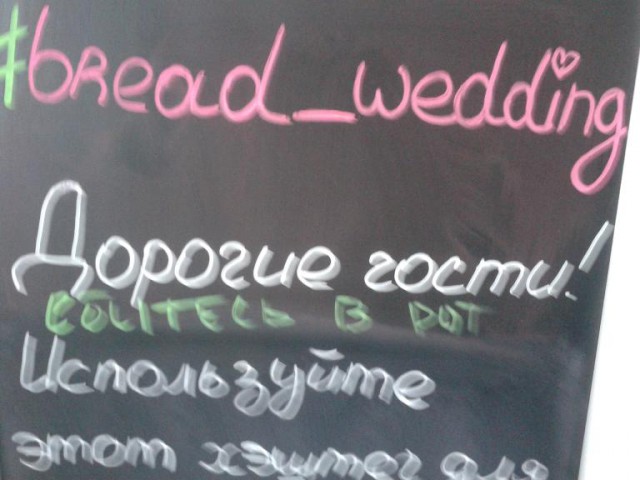 #bread_wedding
Дорогие гости!
ЕБИТЕСЬ В РОТ
Используйте
этот хэштег для